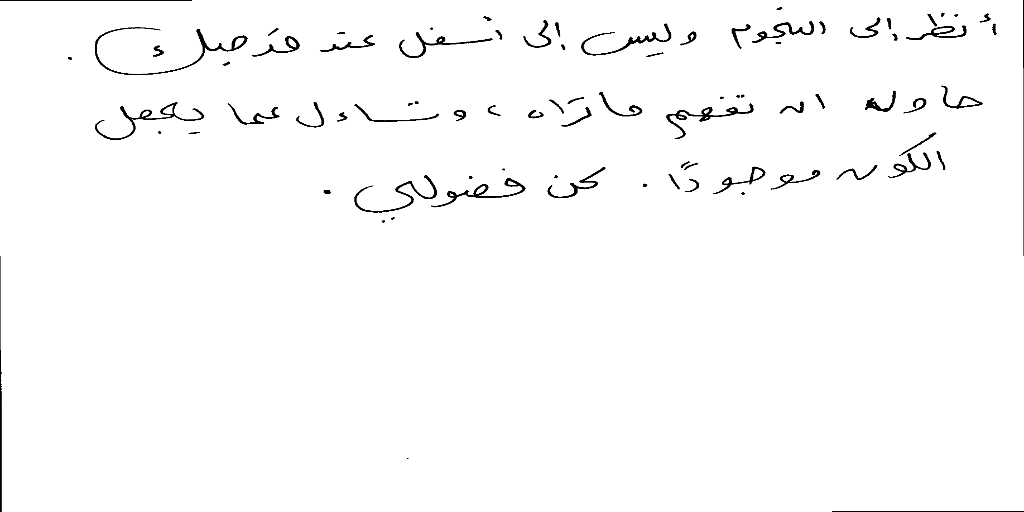 أنظر إلى النجوم وليس إلى أسفل عند قدميك.
حاول ان تفهم ماتراه، وتساءل عما يجعل
الكون موجودًا. كن فضولي.